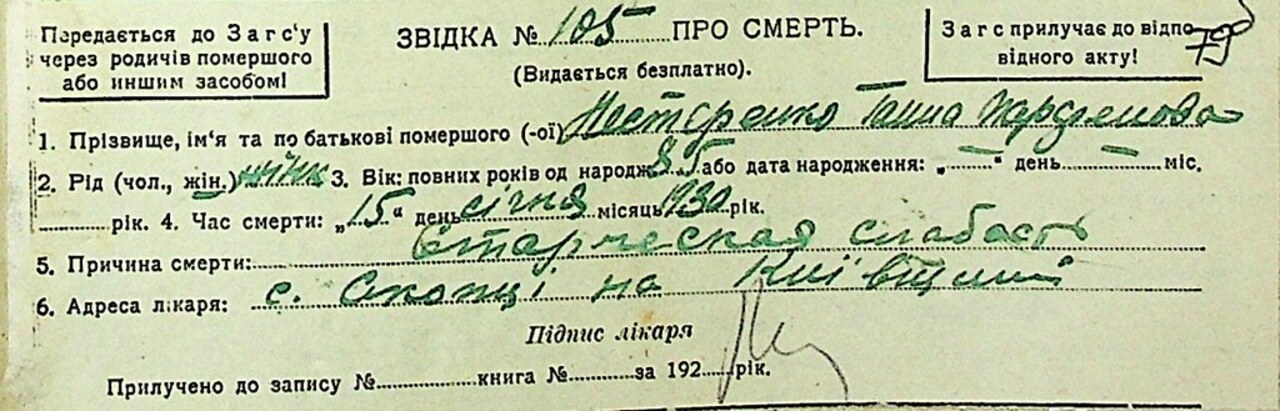 Передається до Загс'у
через родичів помершого
або иншим засобом!
ЗВІДКА № 105 ПРО СМЕРТЬ.
(Видається безплатно).
Загс прилучає до відпо-
відного акту!
79
1. Прізвище, ім'я та по батькові помершого (-ої) Нестеренко Ганна
2. Рід (чол., жін.) жінк 3. Вік: повних років од народж. 85 або дата народження: „—" день — міс.
рік. 4. Час смерти: „15" день січня місяць 1930 рік.
5. Причина смерти: Старческая слабость
6. Адреса лікаря: с. Скопці на Київщині
Підпис лікаря
Прилучено до запису № книга № за 192 рік.